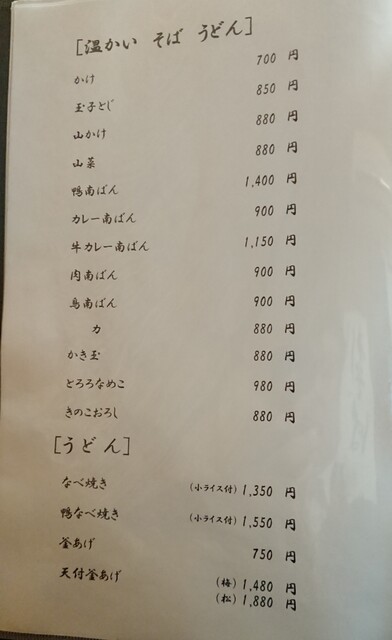 [温かい そば うどん]
かけ 700 円
玉子とじ 850 円
山かけ 880 円
山菜 880 円
鴨南ばん 1,400 円
カレー南ばん 900 円
牛カレー南ばん 1,150 円
肉南ばん 900 円
鳥南ばん 900 円
力 880 円
かき玉 880 円
とろろなめこ 980 円
きのこおろし 880 円
[うどん]
なべ焼き (小ライス付) 1,350 円
鴨なべ焼き (小ライス付) 1,550 円
釜あげ 750 円
天付釜あげ (梅) 1,480 円
(松) 1,880 円